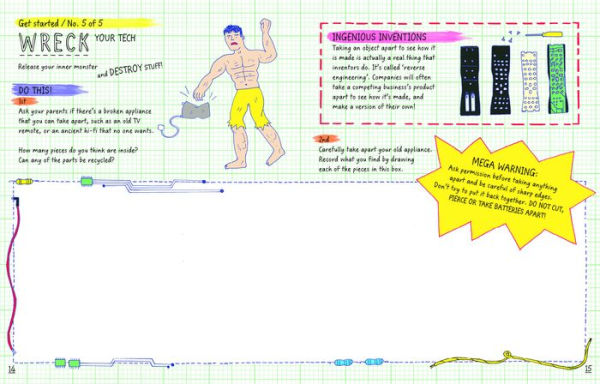 Get started / No. 5 of 5
WRECK YOUR TECH
Release your inner monster
and DESTROY STUFF!
DO THIS!
1st
Ask your parents if there's a broken appliance
that you can take apart, such as an old TV
remote, or an ancient hi-fi that no one wants.
How many pieces do you think are inside?
Can any of the parts be recycled?
INGENIOUS INVENTIONS
Taking an object apart to see how it
is made is actually a real thing that
inventors do. It's called 'reverse
engineering'. Companies will often
take a competing business's product
apart to see how it's made, and
make a version of their own!
2nd
Carefully take apart your old appliance.
Record what you find by drawing
each of the pieces in this box.
MEGA WARNING:
Ask permission before taking anything
apart and be careful of sharp edges.
Don't try to put it back together. DO NOT CUT,
PIERCE OR TAKE BATTERIES APART!
14
15